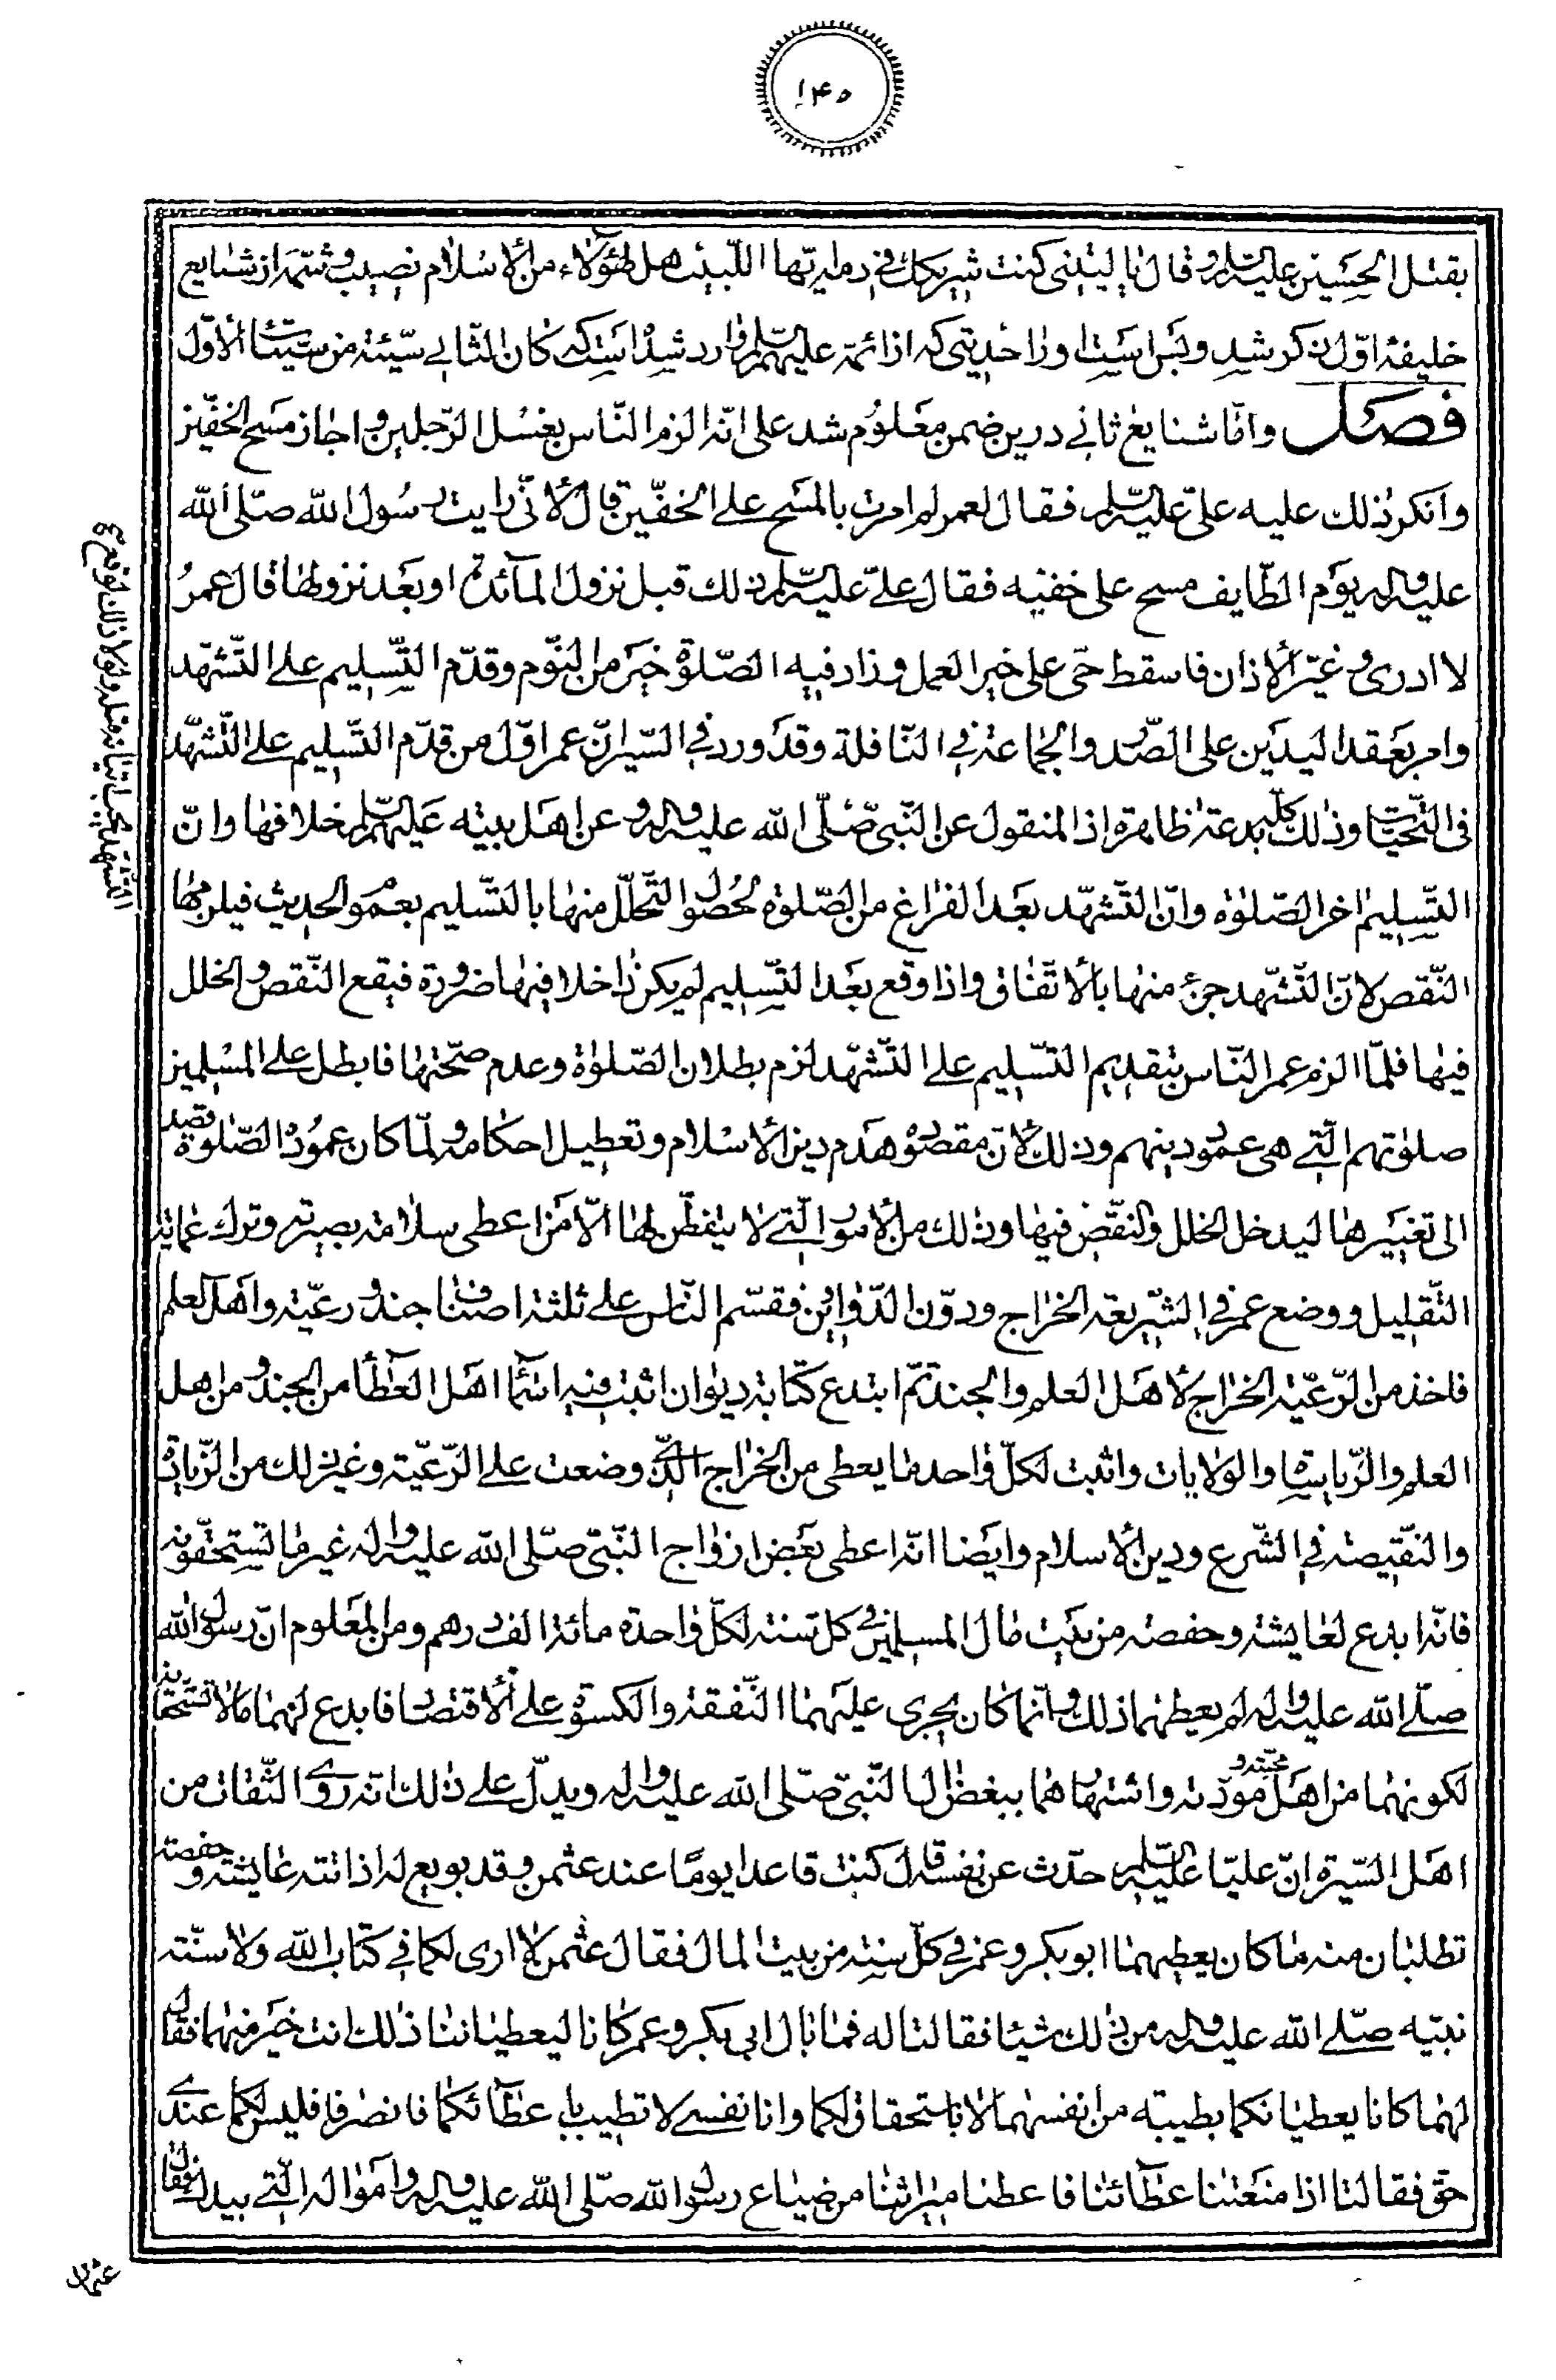 ۱۴۵
بقتل الحسین علیه السلام و قال یا لیتنی کنت شریکک فی دمایتها اللبیب هل لهؤلاء من الاسلام نصیب و شمّه از شنایع
خلیفهٔ اوّل ذکر شد و بس است او را حدیثی که از ائمة علیهم السلم وارد شده است که کان الثانی سیّئة من سیّئات الاوّل
فصل و امّا شنایع ثانی درین ضمن معلوم شد علی انّه الزم النّاس بغسل الرّجلین و اجاز مسح الخفّین
و انکر ذلک علیه علیّ علیه السلم فقال لعمر لم امرت بالمسح علی الخفّین قال لانّی رایت رسول الله صلّی الله
علیه و اله یوم الطّایف مسح علی خفّیه فقال علیّ علیه السلم ذلک قبل نزول المآئدة او بعد نزولها قال عمر
لا ادری و غیّر الاذان فاسقط حیّ علی خیر العمل و زاد فیه الصّلوة خیر من النّوم و قدّم التّسلیم علی التّشهّد
و امر بعقد الیدین علی الصّدر و الجماعة فی النّافلة و قد ورد فی السّیر انّ عمر اوّل من قدّم التّسلیم علی التّشهّد
فی التّحیّات و ذلک کلّه بدعة ظاهرة اذ المنقول عن النّبیّ صلّی الله علیه و اله و عن اهل بیته علیهم السلم خلافها و انّ
التّسلیم اخر الصّلوة و انّ التّشهّد بعد الفراغ من الصّلوة لحصول التّحلّل منها بالتّسلیم بعموم الحدیث فیلزمها
النّقص لانّ التّشهّد جزء منها بالاتّفاق و اذا وقع بعد التّسلیم لم یکن داخلا فیها ضرورة فیقع النّقص و الخلل
فیها فلمّا الزم عمر النّاس بتقدیم التّسلیم علی التّشهّد لزم بطلان الصّلوة و عدم صحّتها فابطل علی المسلمین
صلوتهم الّتی هی عمود دینهم و ذلک لانّ مقصوده هدم دین الاسلام و تعطیل احکامه و لمّا کان عموده الصّلوة قصد
الی تغییرها لیدخل الخلل و النّقص فیها و ذلک من الامور الّتی لا یتفطّن لها الّا من اعطی سلامة بصیرته و ترک عمایة
التّقلید و وضع عمر فی الشّریعة الخراج و دوّن الدّواوین فقسّم النّاس علی ثلثة اصناف جند و رعیّة و اهل العلم
فاخذ من الرّعیّة الخراج لاهل العلم و الجند ثمّ ابتدع کتابة دیوان اثبت فیه اسمآء اهل العطآء من الجند و من اهل
العلم و الرّیاسات و الولایات و اثبت لکلّ واحد ما یعطی من الخراج الّذی وضعت علی الرّعیّة و غیر ذلک من الزّیادة
و النّقیصة فی الشّرع و دین الاسلام و ایضا انّه اعطی بعض ازواج النّبیّ صلّی الله علیه و اله غیر ما تستحقّونه
فانّه ابدع لعایشة و حفصه من بیت مال المسلمین فی کل سنته لکلّ واحدة مائة الف درهم و من المعلوم انّ رسول الله
صلّی الله علیه و اله لم یعطهما ذلک و انّما کان یجری علیهما النّفقة و الکسوة علی الاقتصاد فابدع لهما ما لا تستحقانه
لکونهما من اهل محبّته و مودّته و اشتهارهما ببغض ال النّبیّ صلّی الله علیه و اله و یدلّ علی ذلک انّه روی الثّقات من
اهل السّیرة انّ علیّا علیه السلم حدّث عن نفسه قال کنت قاعدا یومًا عند عثمن و قد بویع له اذ اتته عایشة و حفصة
تطلبان منه ما کان یعطیهما ابوبکر و عمر فی کلّ سنة من بیت المال فقال عثمن لا اری لکما فی کتاب الله و لا سنّته
نبیّه صلّی الله علیه و اله من ذلک شیئا فقالتا له فما بال ابی بکر و عمر کانا لیعطیاننا ذلک انت خیر منهما فقال
لهما کانا یعطیانکما بطیبته من انفسهما لا باستحقاق لکما و انا نفسی لا تطیب باعطآئکما فانصرفا فلیس لکما عندی
حقّ فقالتا اذا منعتنا عطآئنا فاعطنا میراثنا من ضیاع رسول الله صلّی الله علیه و اله و امواله الّتی بیدک فقال
عثمان